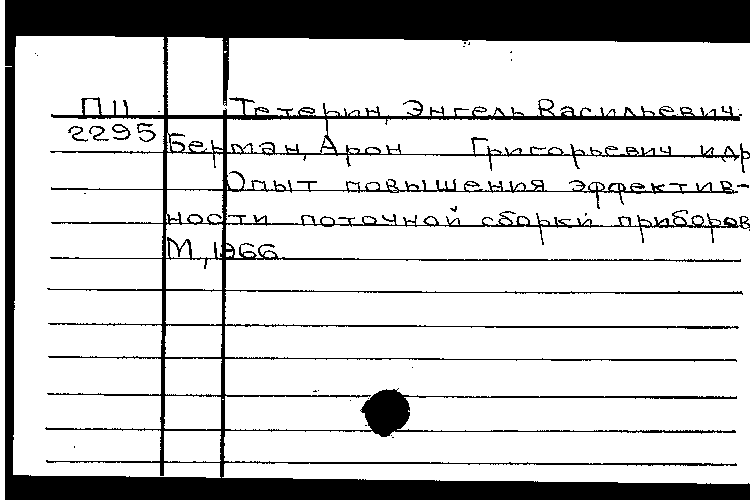 П 11
2295
Тетерин, Энгель Васильевич.
Берман, Арон Григорьевич и др
Опыт повышения эффектив-
ности поточной сборки приборов
М., 1966.